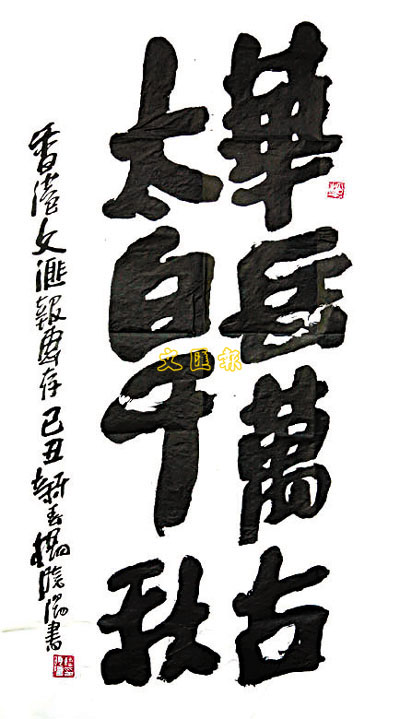 華岳萬古
太白千秋
香港文滙報惠存 己丑新春 楊曉陽書
文匯報